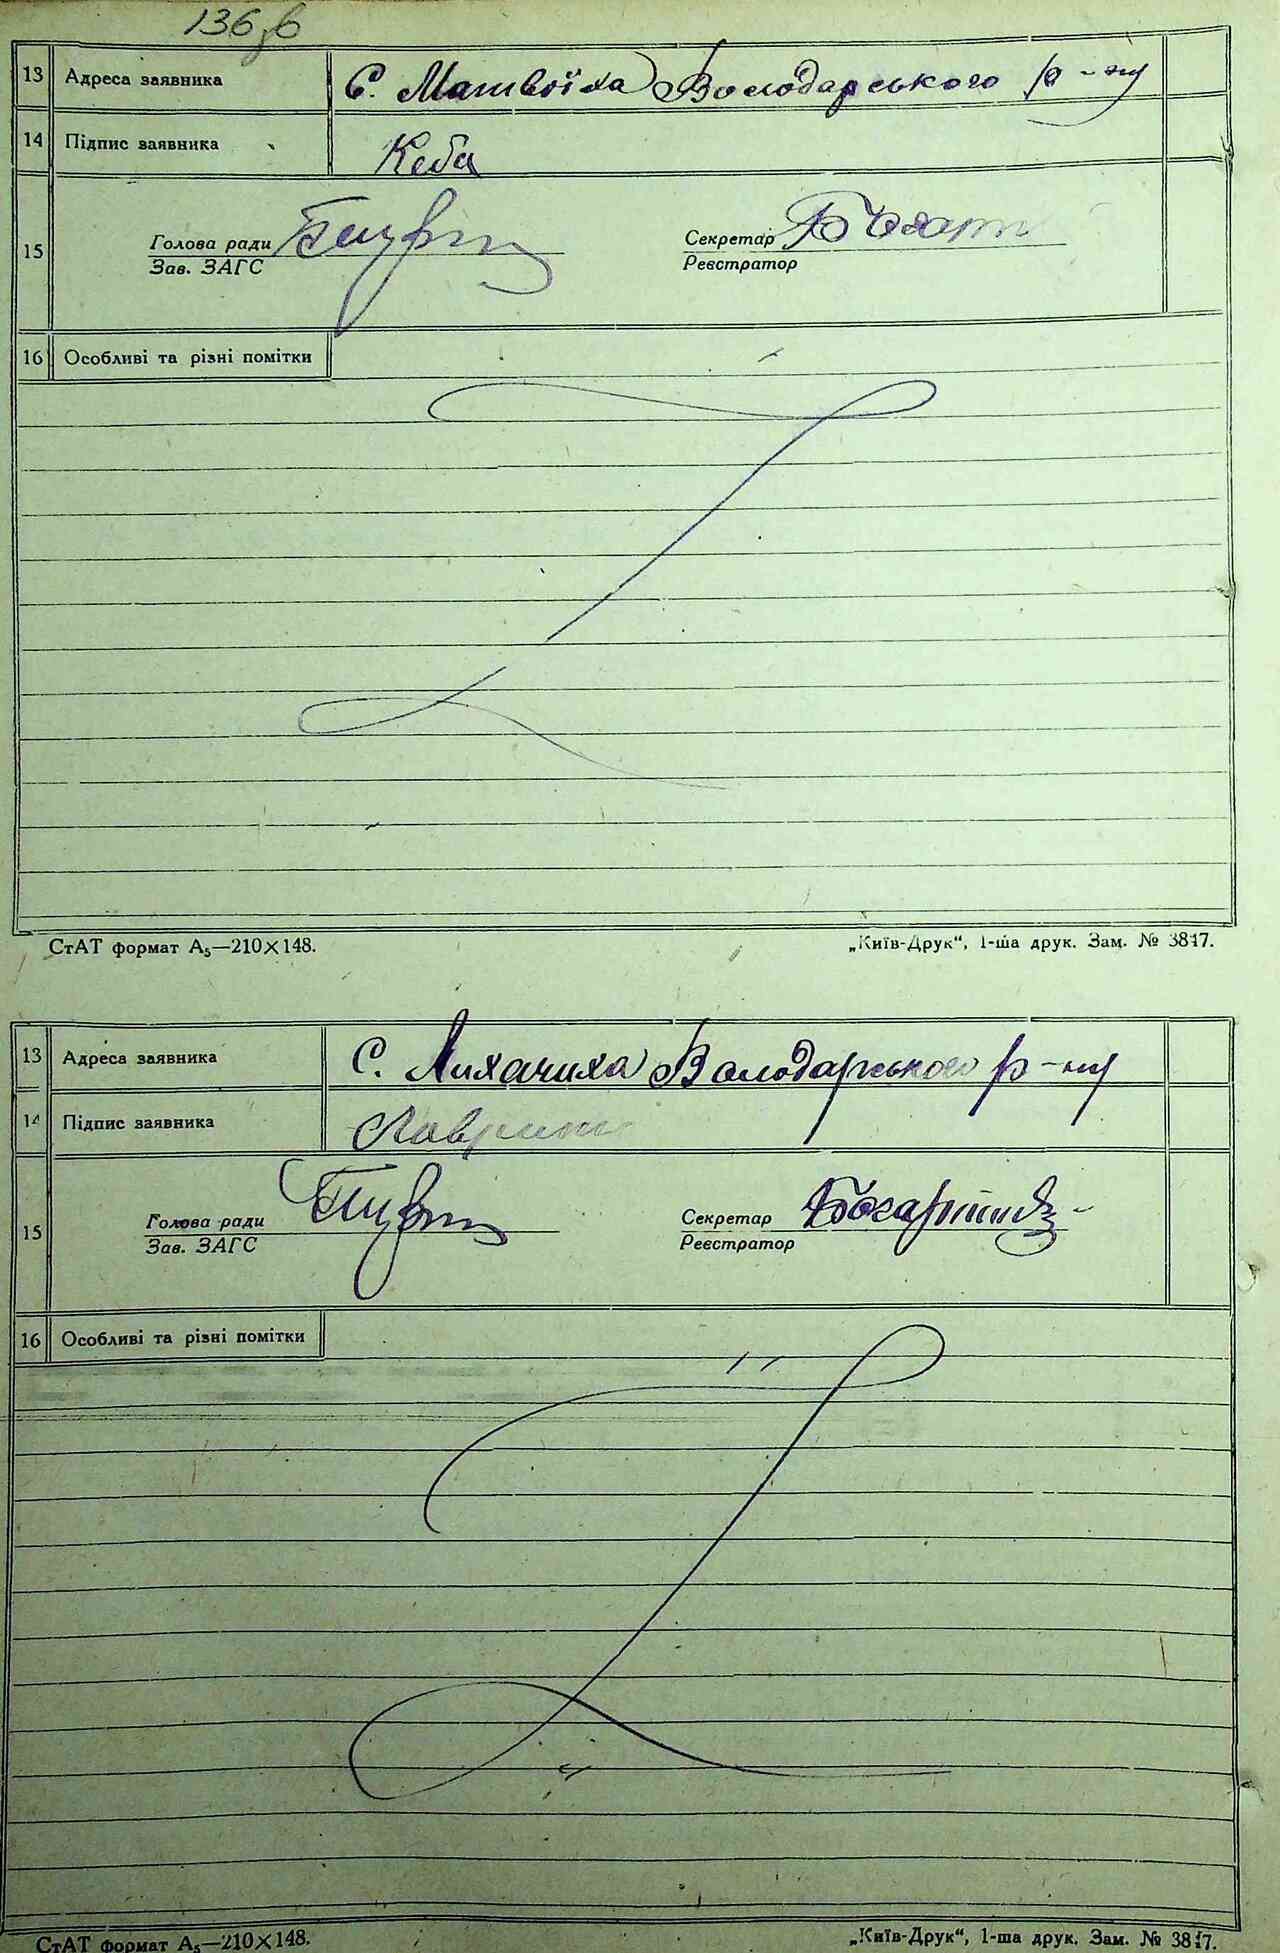 136,в
13 Адреса заявника С. Матвоїха Володарського р-ну
14 Підпис заявника Кеба
15 Голова ради Секретар
Зав. ЗАГС Реєстратор
16 Особливі та різні помітки
СтАТ формат А₅—210×148. „Київ-Друк“, 1-ша друк. Зам. № 3817.
13 Адреса заявника С. Лихачиха Володарського р-ну
14 Підпис заявника
15 Голова ради Секретар
Зав. ЗАГС Реєстратор
16 Особливі та різні помітки
СтАТ формат А₅—210×148. „Київ-Друк“, 1-ша друк. Зам. № 3817.